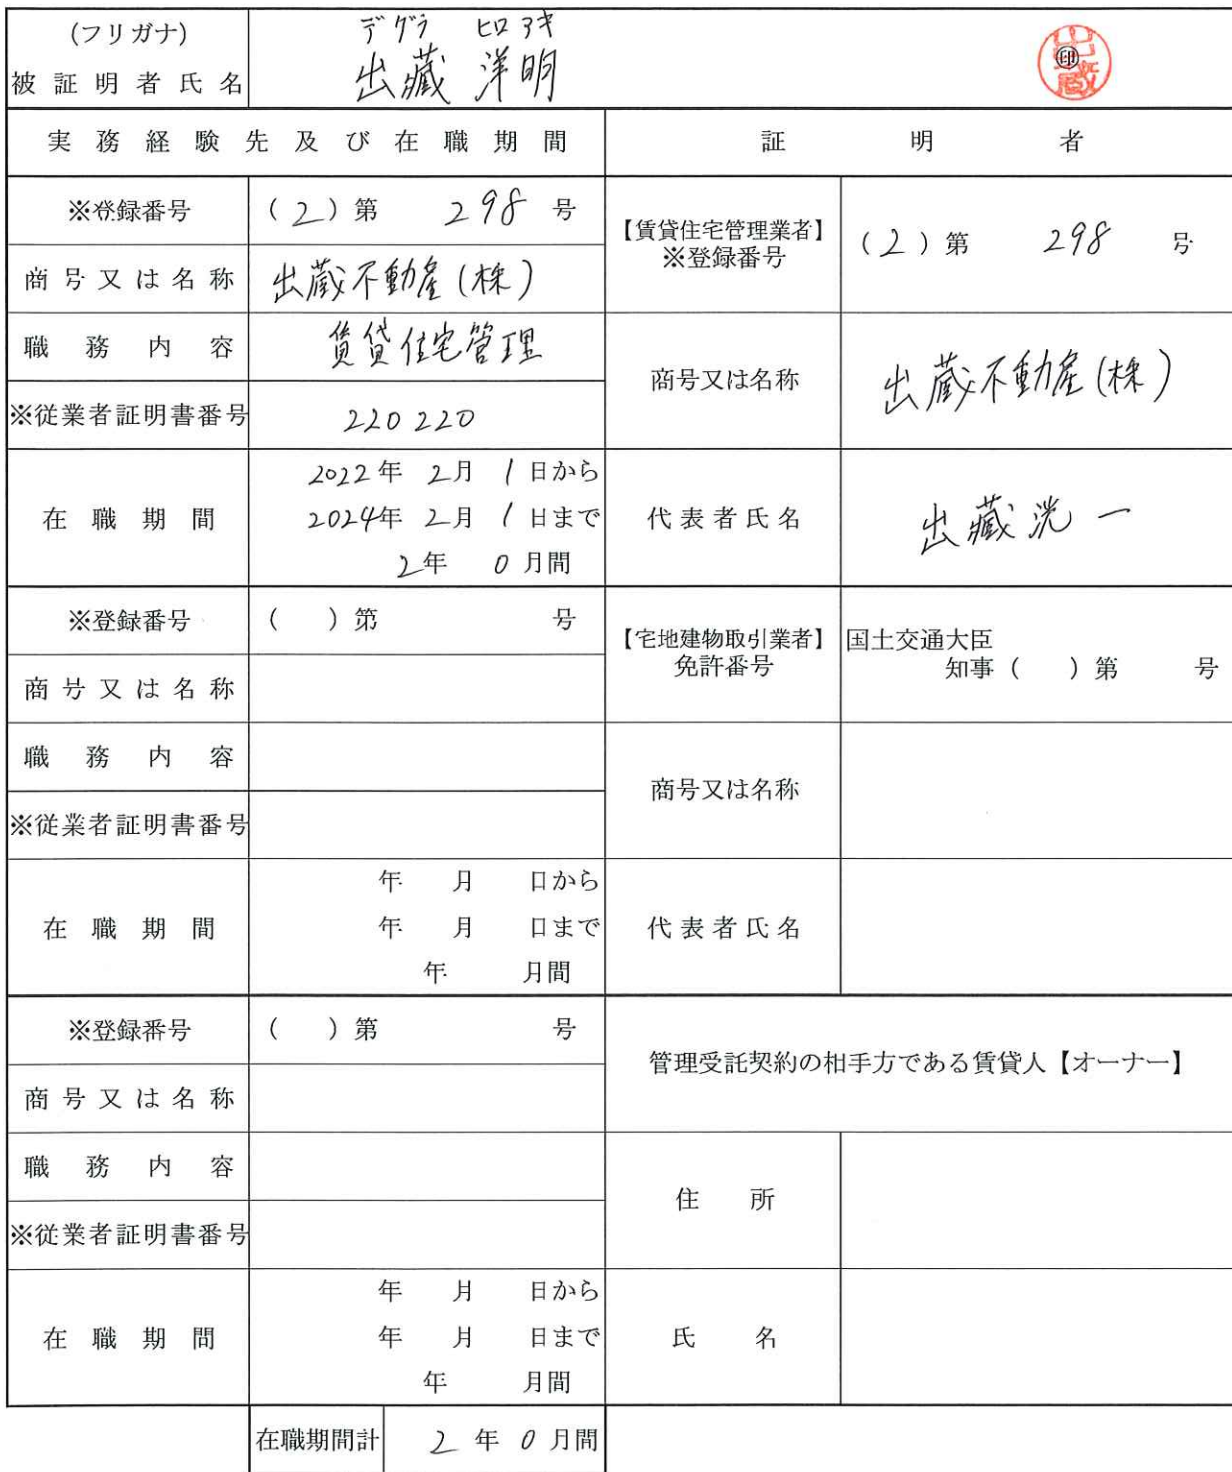 (フリガナ) デグラ ヒロアキ
被証明者氏名 出蔵 洋明 ㊞ 出蔵
実務経験先及び在職期間 証明者
※登録番号 (2)第 298 号
【賃貸住宅管理業者】
※登録番号 (2)第 298 号
商号又は名称 出蔵不動産(株)
職務内容 賃貸住宅管理
商号又は名称 出蔵不動産(株)
※従業者証明書番号 220220
在職期間 2022年 2月 1日から
2024年 2月 1日まで
2年 0月間
代表者氏名 出蔵洸一
※登録番号 ( )第 号
【宅地建物取引業者】
免許番号
国土交通大臣
知事( )第 号
商号又は名称
職務内容
商号又は名称
※従業者証明書番号
在職期間 年 月 日から
年 月 日まで
年 月間
代表者氏名
※登録番号 ( )第 号
管理受託契約の相手方である賃貸人【オーナー】
商号又は名称
職務内容
住所
※従業者証明書番号
在職期間 年 月 日から
年 月 日まで
年 月間
氏名
在職期間計 2年 0月間